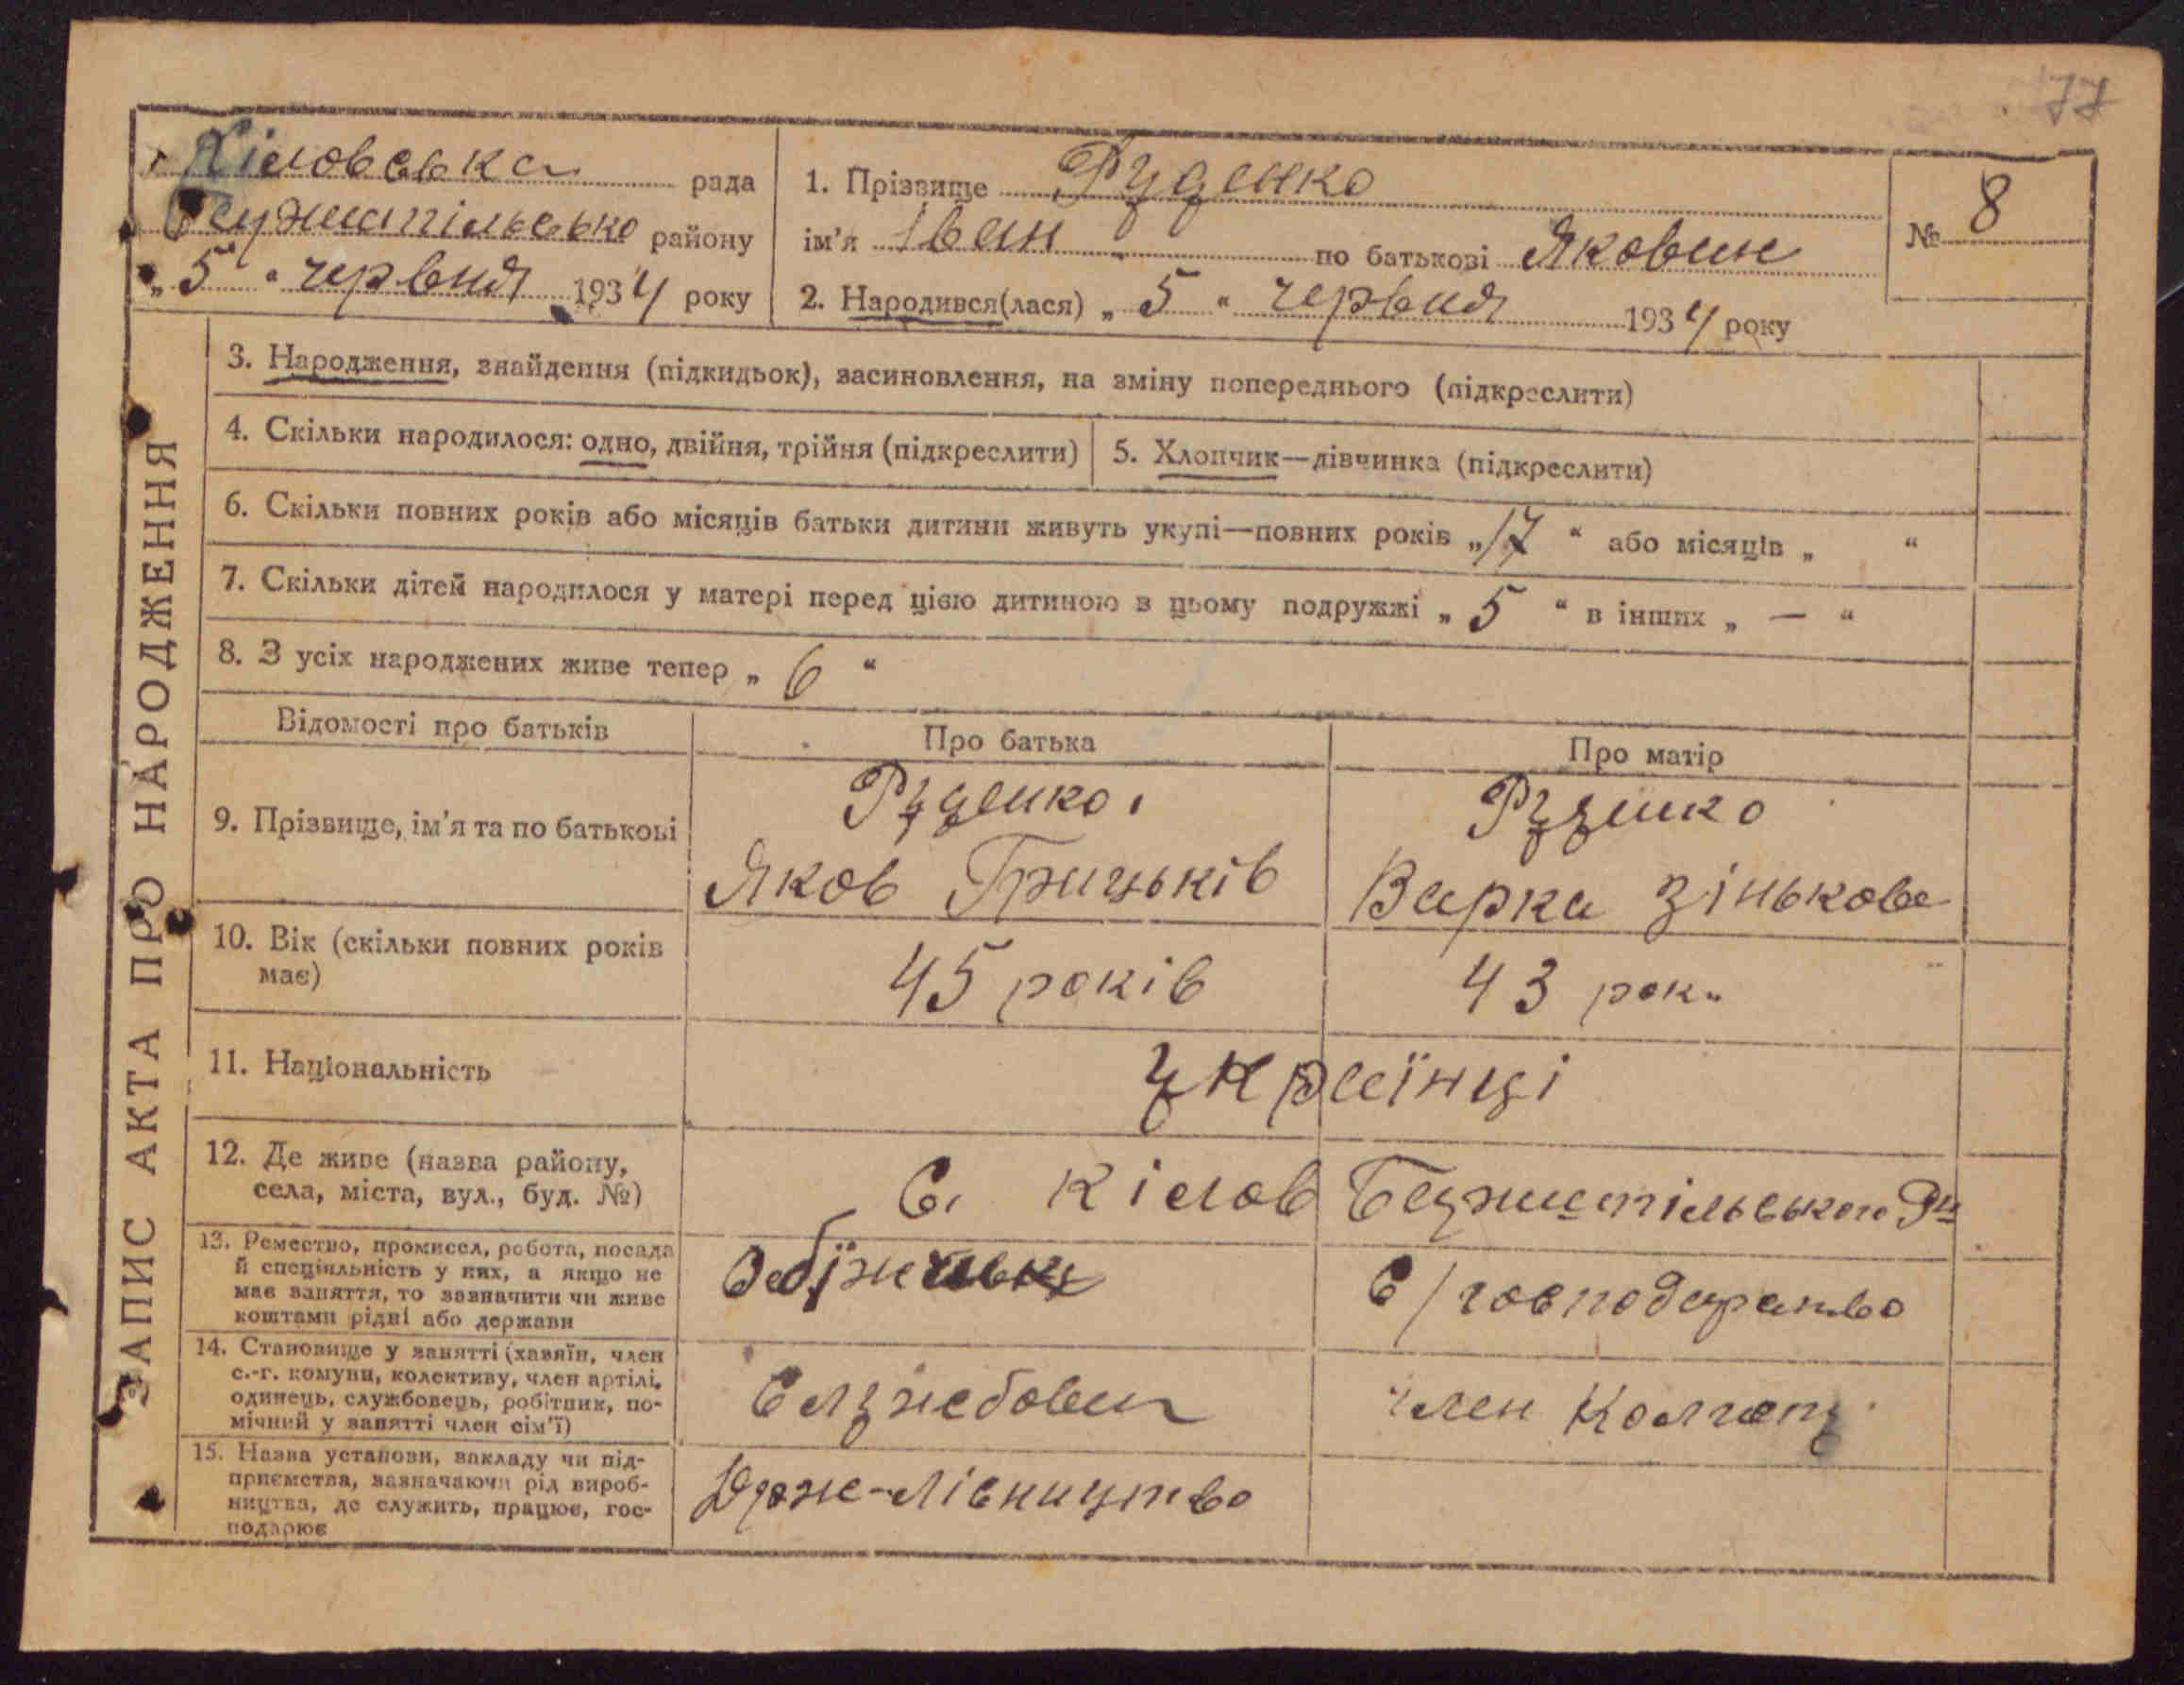 77
Кіловська рада
району
„ 5 “ червня 1934 року
1. Прізвище Руденко
ім'я Іван по батькові Яковин
2. Народився(лася) „ 5 “ червня 1934 року
№ 8
ЗАПИС АКТА ПРО НАРОДЖЕННЯ
3. Народження, знайдення (підкидьок), засиновлення, на зміну попереднього (підкреслити)
4. Скільки народилося: одно, двійня, трійня (підкреслити)
5. Хлопчик—дівчинка (підкреслити)
6. Скільки повних років або місяців батьки дитини живуть укупі—повних років „17“ або місяців „ “
7. Скільки дітей народилося у матері перед цією дитиною в цьому подружжі „ 5 “ в інших „ — “
8. З усіх народжених живе тепер „ 6 “
Відомості про батьків
Про батька
Про матір
9. Прізвище, ім'я та по батькові
Руденко
Яков Грицьків
Руденко
Варка Зінькова
10. Вік (скільки повних років
має)
45 років
43 рок.
11. Національність
Українці
12. Де живе (назва району,
села, міста, вул., буд. №)
С. Кілов
13. Ремество, промисел, робота, посада
й спеціяльність у них, а якщо не
має заняття, то зазначити чи живе
коштами рідні або держави
С/господарство
14. Становище у занятті (хазяїн, член
с.-г. комуни, колективу, член артілі,
одинець, службовець, робітник, по-
мічний у занятті член сім'ї)
Службовець
член Колгоспу
15. Назва установи, закладу чи під-
приємства, зазначаючи рід вироб-
ництва, де служить, працює, гос-
подарює
Держ-лісництво